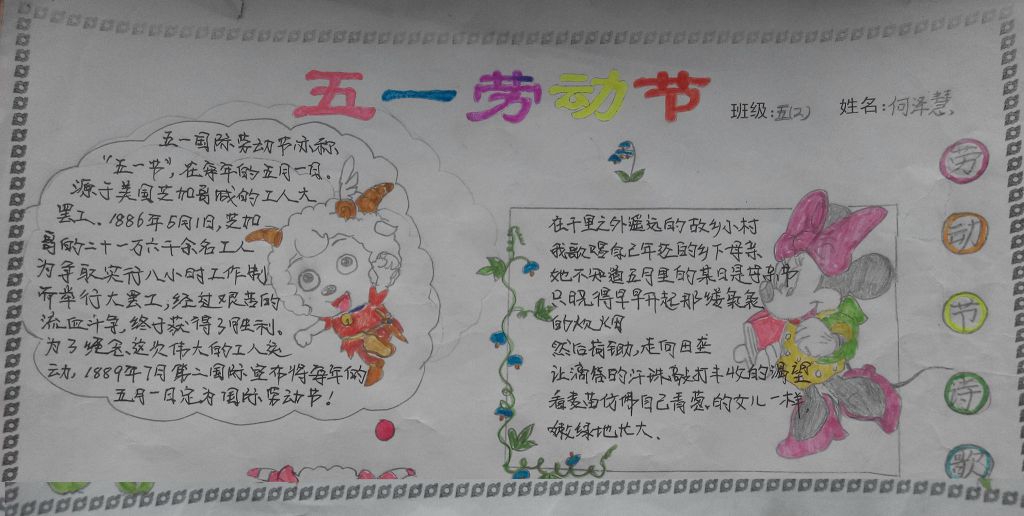 五一劳动节
班级:五(2) 姓名:何泽慧
五一国际劳动节亦称
"五一节",在每年的五月一日。
源于美国芝加哥城的工人大
罢工、1886年5月1日,芝加
哥的二十一万六千余名工人
为争取实行八小时工作制
而举行大罢工,经过艰苦的
流血斗争,终于获得了胜利。
为了纪念这次伟大的工人运
动,1889年7月第二国际宣布将每年的
五月一日定为国际劳动节!
在千里之外遥远的故乡小村
我歌唱自己年轻的乡下母亲
她不知道五月里的某日是
只晓得早早开起那缕氤氲
的炊烟
然后荷锄,走向田垄
让滴落的汗珠敲打丰收的渴望
看麦苗仿佛自己青葱的女儿一样,
嫩绿地忙大.
劳
动
节
诗
歌